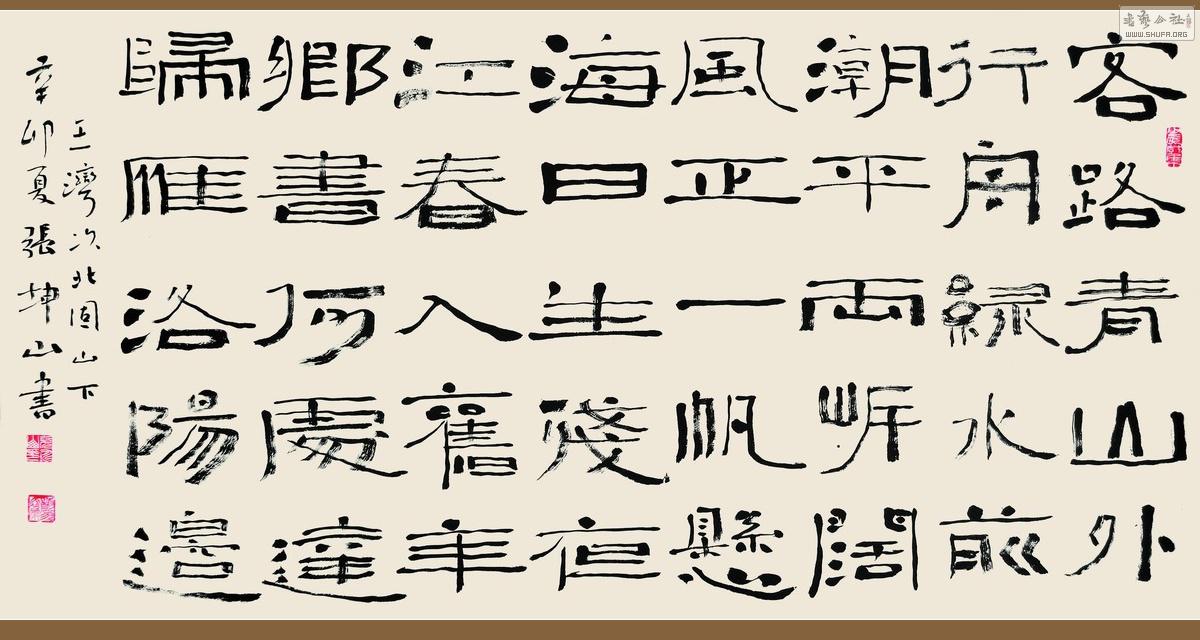 客路青山外
行舟綠水前
潮平兩岍闊
風正一帆懸
海日生殘夜
江春入舊年
鄉書何處達
歸雁洛陽邊
王灣次北固山下
辛卯夏張坤山書
书艺公社
WWW.SHUFA.ORG